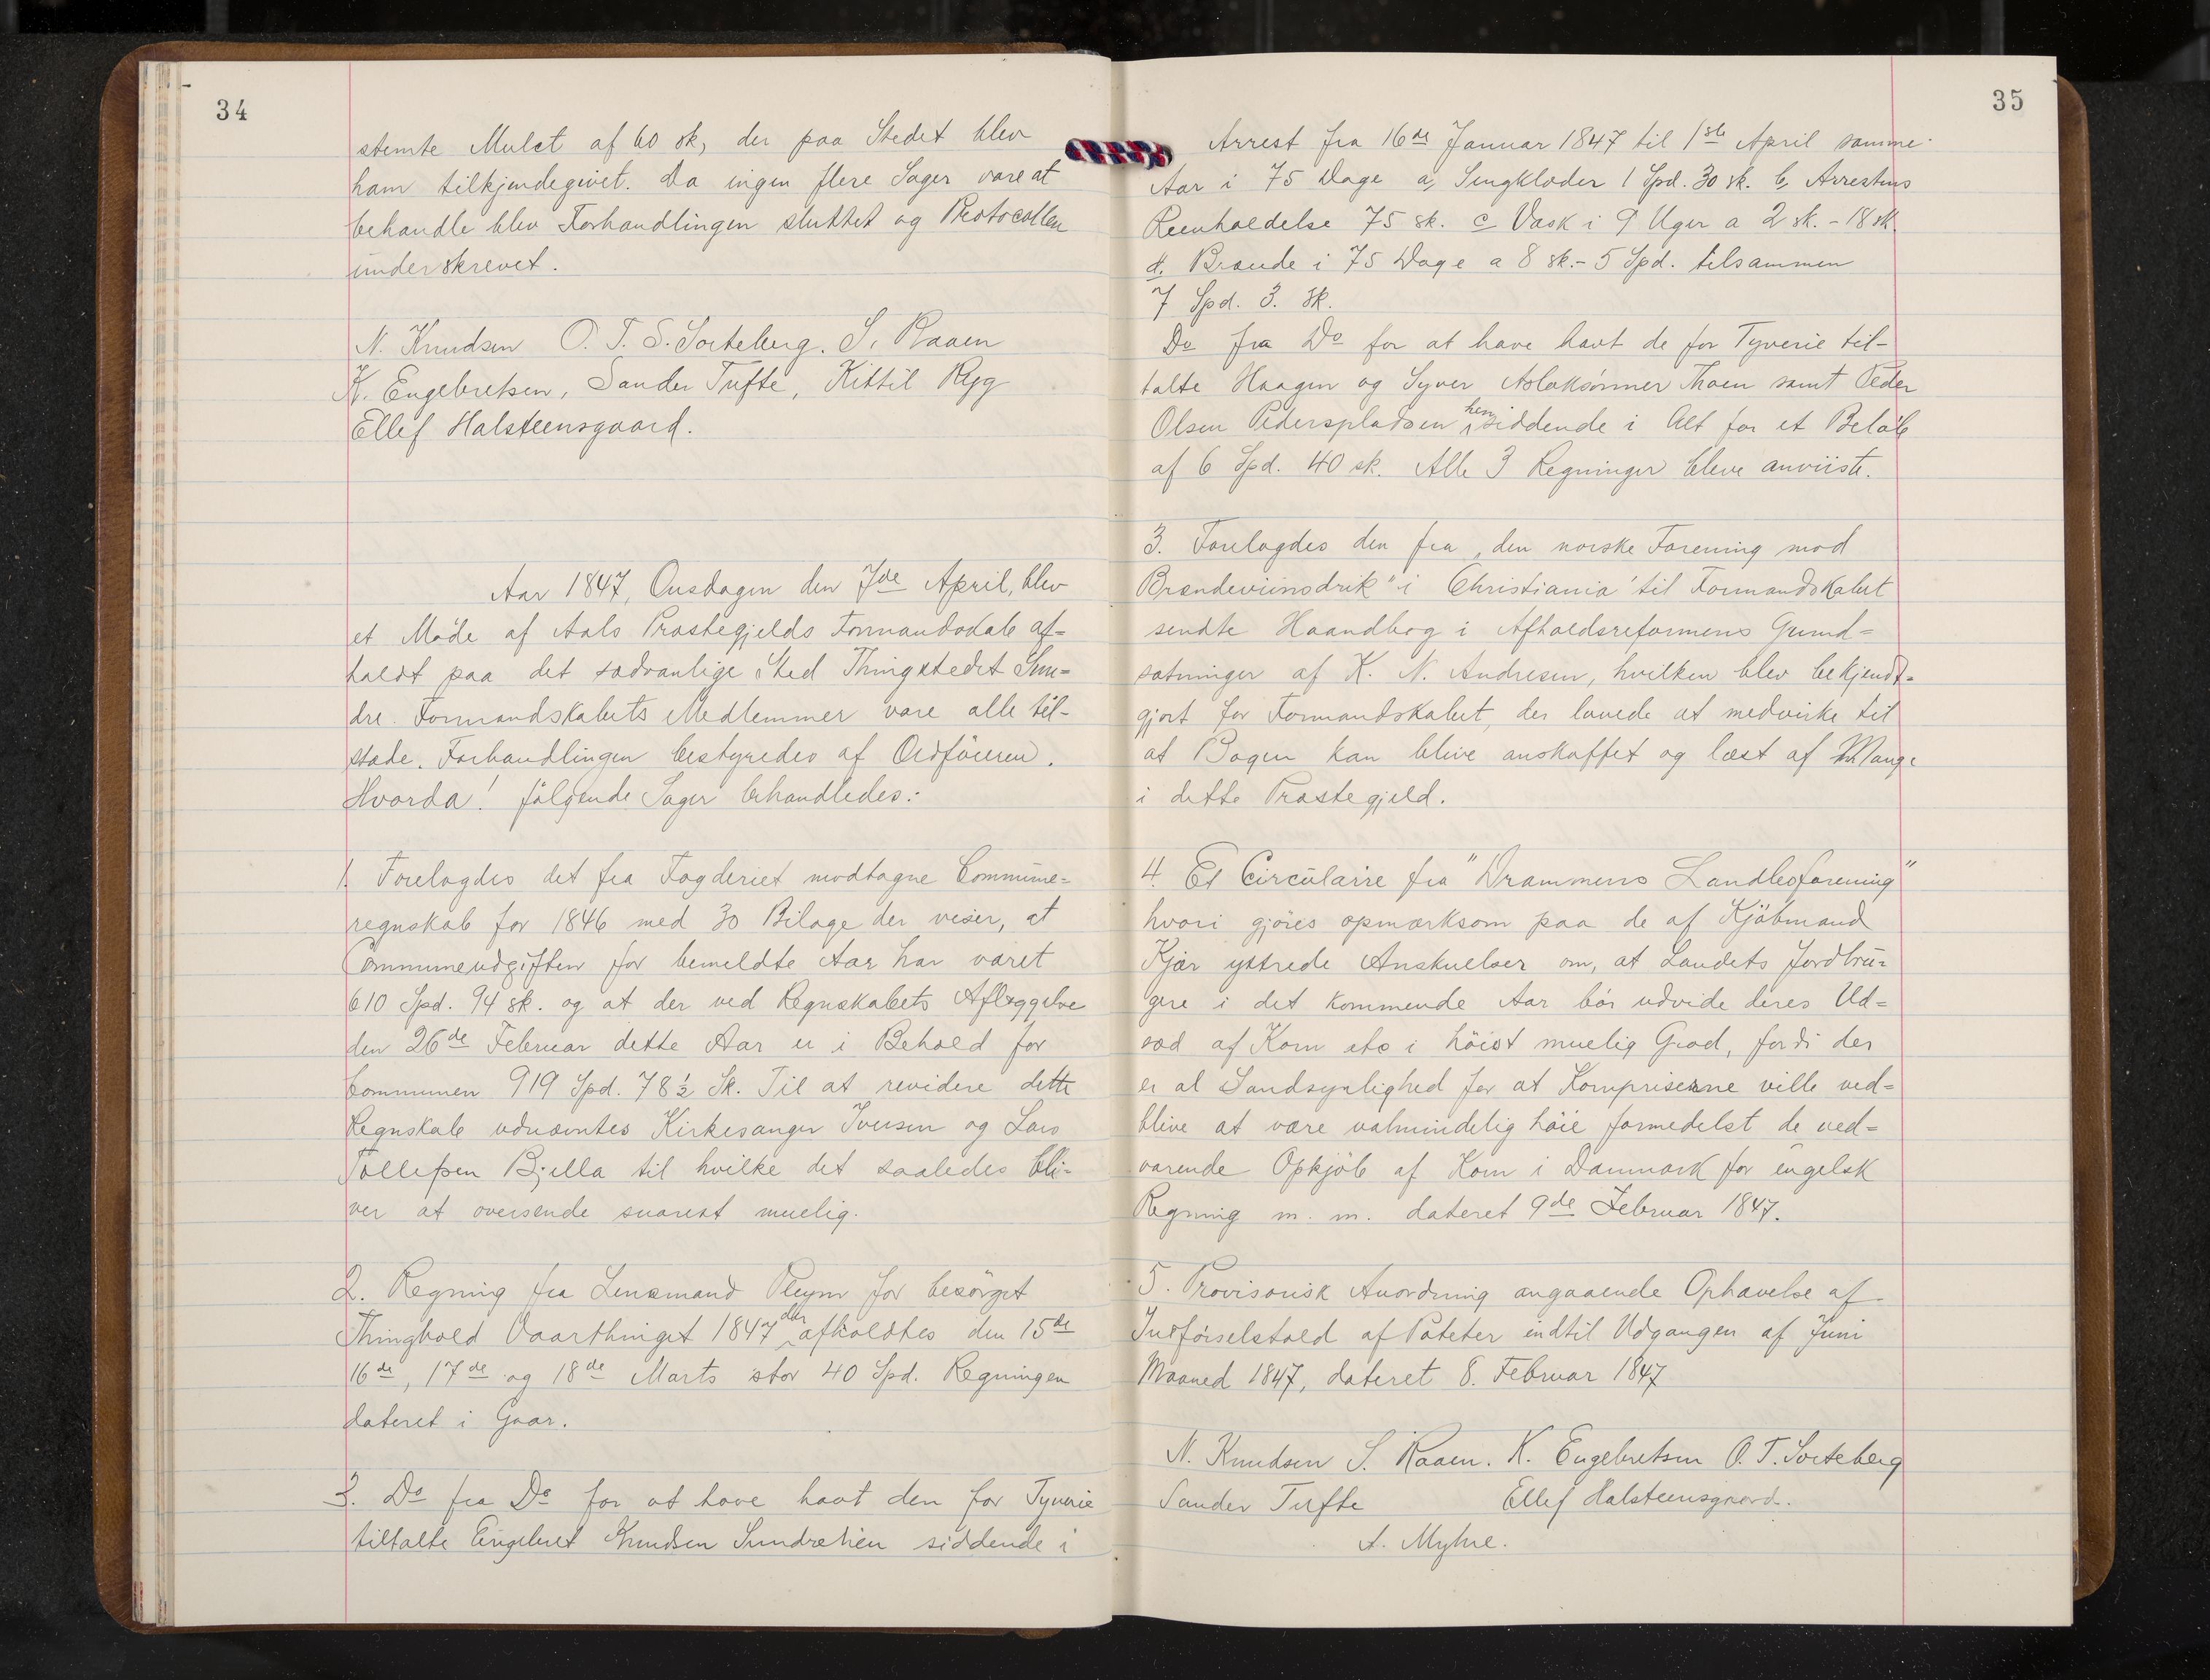 34
stemte Mulct af 60 sk, der paa Stedet blev
ham tilkjendegivet. Da ingen flere Sager vare at
behandle blev Forhandlingen sluttet og Protocollen
underskrevet.
N. Knudsen O. T. S. Sorteberg. S. Raaen
K. Engebretsen, Sander Tufte, Kittil Ryg
Ellef Halsteensgaard.
Aar 1847, Onsdagen den 7de April, blev
et Møde af Aals Præstegjelds Formandskab af=
holdt paa det sædvanlige Sted Thingstedet Sun=
dre. Formandskabets Medlemmer vare alle til-
stæde. Forhandlingen bestyredes af Ordføreren.
Hvorda! følgende Sager behandledes:
1. Forelagdes det fra Fogderiet modtagne Commune=
regnskab for 1846 med 30 Bilage der viser, at
Communeudgiften for bemeldte Aar har været
610 Spd. 94 sk. og at der ved Regnskabets Aflæggelse
den 26de Februar dette Aar er i Behold for
Communen 919 Spd. 78½ Sk. Til at revidere dette
Regnskab udnævntes Kirkesanger Iversen og Lars
Tollefsen Bjella til hvilke det saaledes bli=
ver at oversende snarest muelig.
2. Regning fra Lensmand Pleym for besørget
Thinghold Vaarthinget 1847 der afholdtes den 15de
16de, 17de og 18de Marts stor 40 Spd. Regningen
dateret i Gaar.
3. Do fra Do for at have havt den for Tyverie
tiltalte Engebret Knudsen Sundrehien siddende i
35
Arrest fra 16de Januar 1847 til 1ste April samme
Aar i 75 Dage a, Sengklæder 1 Spd. 30 sk. b, Arrestens
Reenholdelse 75 sk. c Vask i 9 Uger a 2 sk. - 18 sk.
d. Brænde i 75 Dage a 8 sk. - 5 Spd. tilsammen
7 Spd. 3. Sk.
Do fra Do for at have havt de for Tyverie til-
talte Haagen og Syver Aslaksønner Thoen samt Peder
Olsen Pederspladsen hensiddende i Alt for et Beløb
af 6 Spd. 40 sk. Alle 3 Regninger bleve anviiste.
3. Forelagdes den fra "den norske Forening mod
Brændeviinsdrik" i Christiania til Formandskabet
sendte Haandbog i Afholdsreformens Grund=
sætninger af K. N. Andresen, hvilken blev bekjendt=
gjort for Formandskabet, der lovede at medvirke til
at Bogen kan blive anskaffet og læst af Mange
i dette Præstegjeld.
4. Et Circulaire fra "Drammens Landboforening"
hvori gjøres opmærksom paa de af Kjøbmand
Kjær yttrede Anskuelser om, at Landets Jordbru=
gere i det kommende Aar bør udvide deres Ud=
sæd af Korn etc i høist muelig Grad, fordi der
er al Sandsynlighed for at Kornpriserne ville ved=
blive at være ualmindelig høie formedelst de ved=
varende Opkjøb af Korn i Danmark for engelsk
Regning m. m. dateret 9de Februar 1847.
5. Provisorisk Anordning angaaende Ophævelse af
Indførselstold af Poteter indtil Udgangen af Juni
Maaned 1847, dateret 8. Februar 1847
N. Knudsen S. Raaen. K. Engebretsen O. T. Sorteberg
Sander Tufte Ellef Halsteensgaard.
A. Myhre.